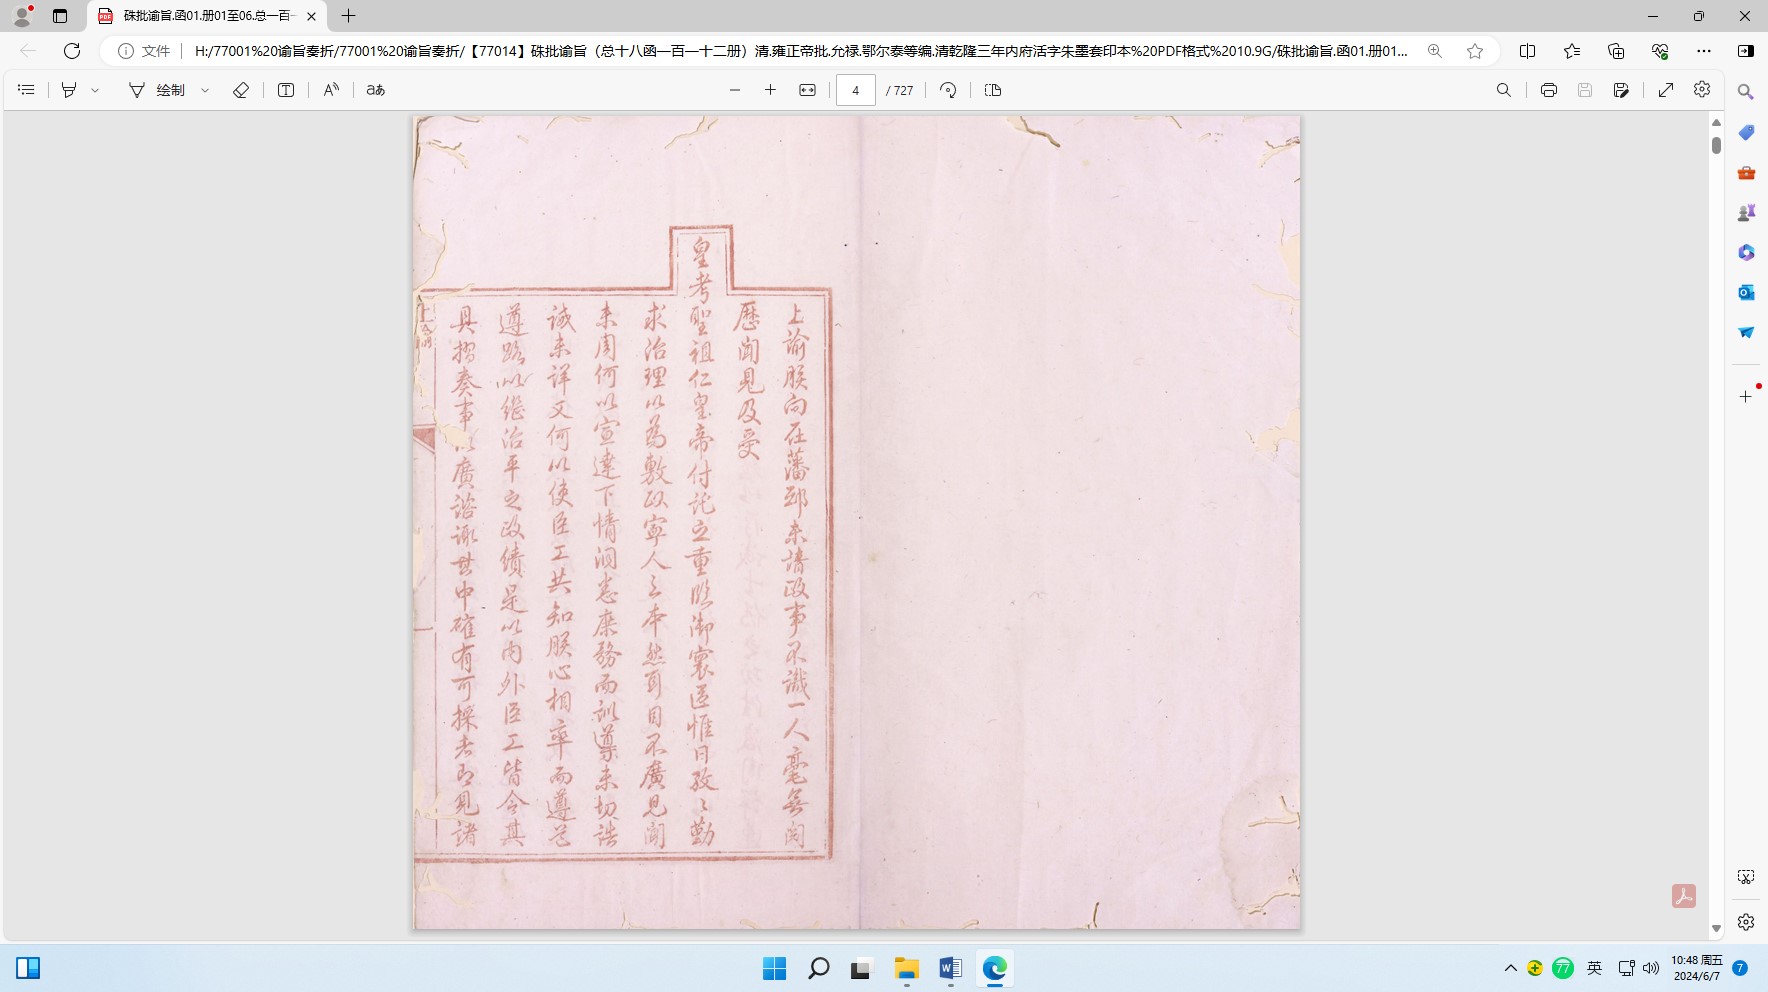 硃批谕旨.函01.册01至06.总一百一
文件
H:/77001%20谕旨奏折/77001%20谕旨奏折/【77014】硃批谕旨（总十八函一百一十二册）清.雍正帝批.允禄.鄂尔泰等编.清乾隆三年内府活字朱墨套印本%20PDF格式%2010.9G/硃批谕旨.函01.册01...
绘制
aあ
4
/ 727
上諭朕向在藩邸未諳政事不識一人毫無閱
歷聞見及受
皇考聖祖仁皇帝付託之重臨御寰區惟日孜〻勤
求治理以為敷政寧人之本然耳目不廣見聞
未周何以宣達下情洞悉庶務而訓導未切誥
誡未詳又何以使臣工共知朕心相率而遵道
遵路以繼治平之政績是以內外臣工皆令其
具摺奏事以廣諮諏其中確有可採者即見諸
上諭
77
英
10:48 周五
2024/6/7
7